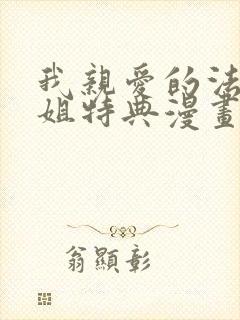 我親愛的法
姐特典漫畫
翁顯彰